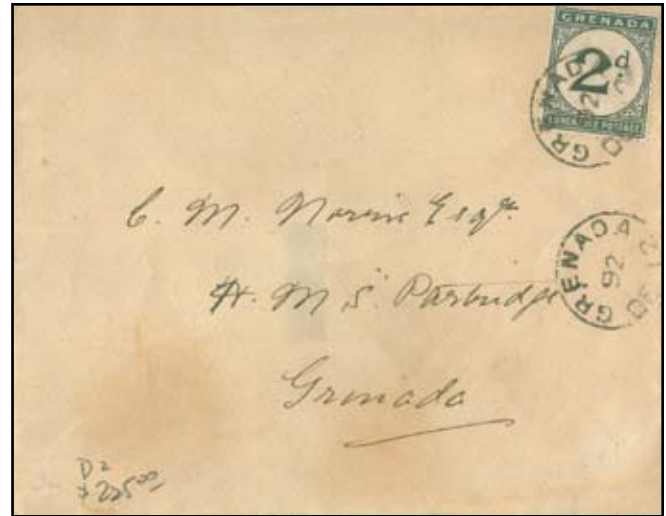 GRENADA
2d.
SURCHARGE POSTAGE
GRENADA
92
C. M. Norris Esqr.
H. M. S. Partridge
Grenada
GRENADA
92
DE 12
D2
$225.00